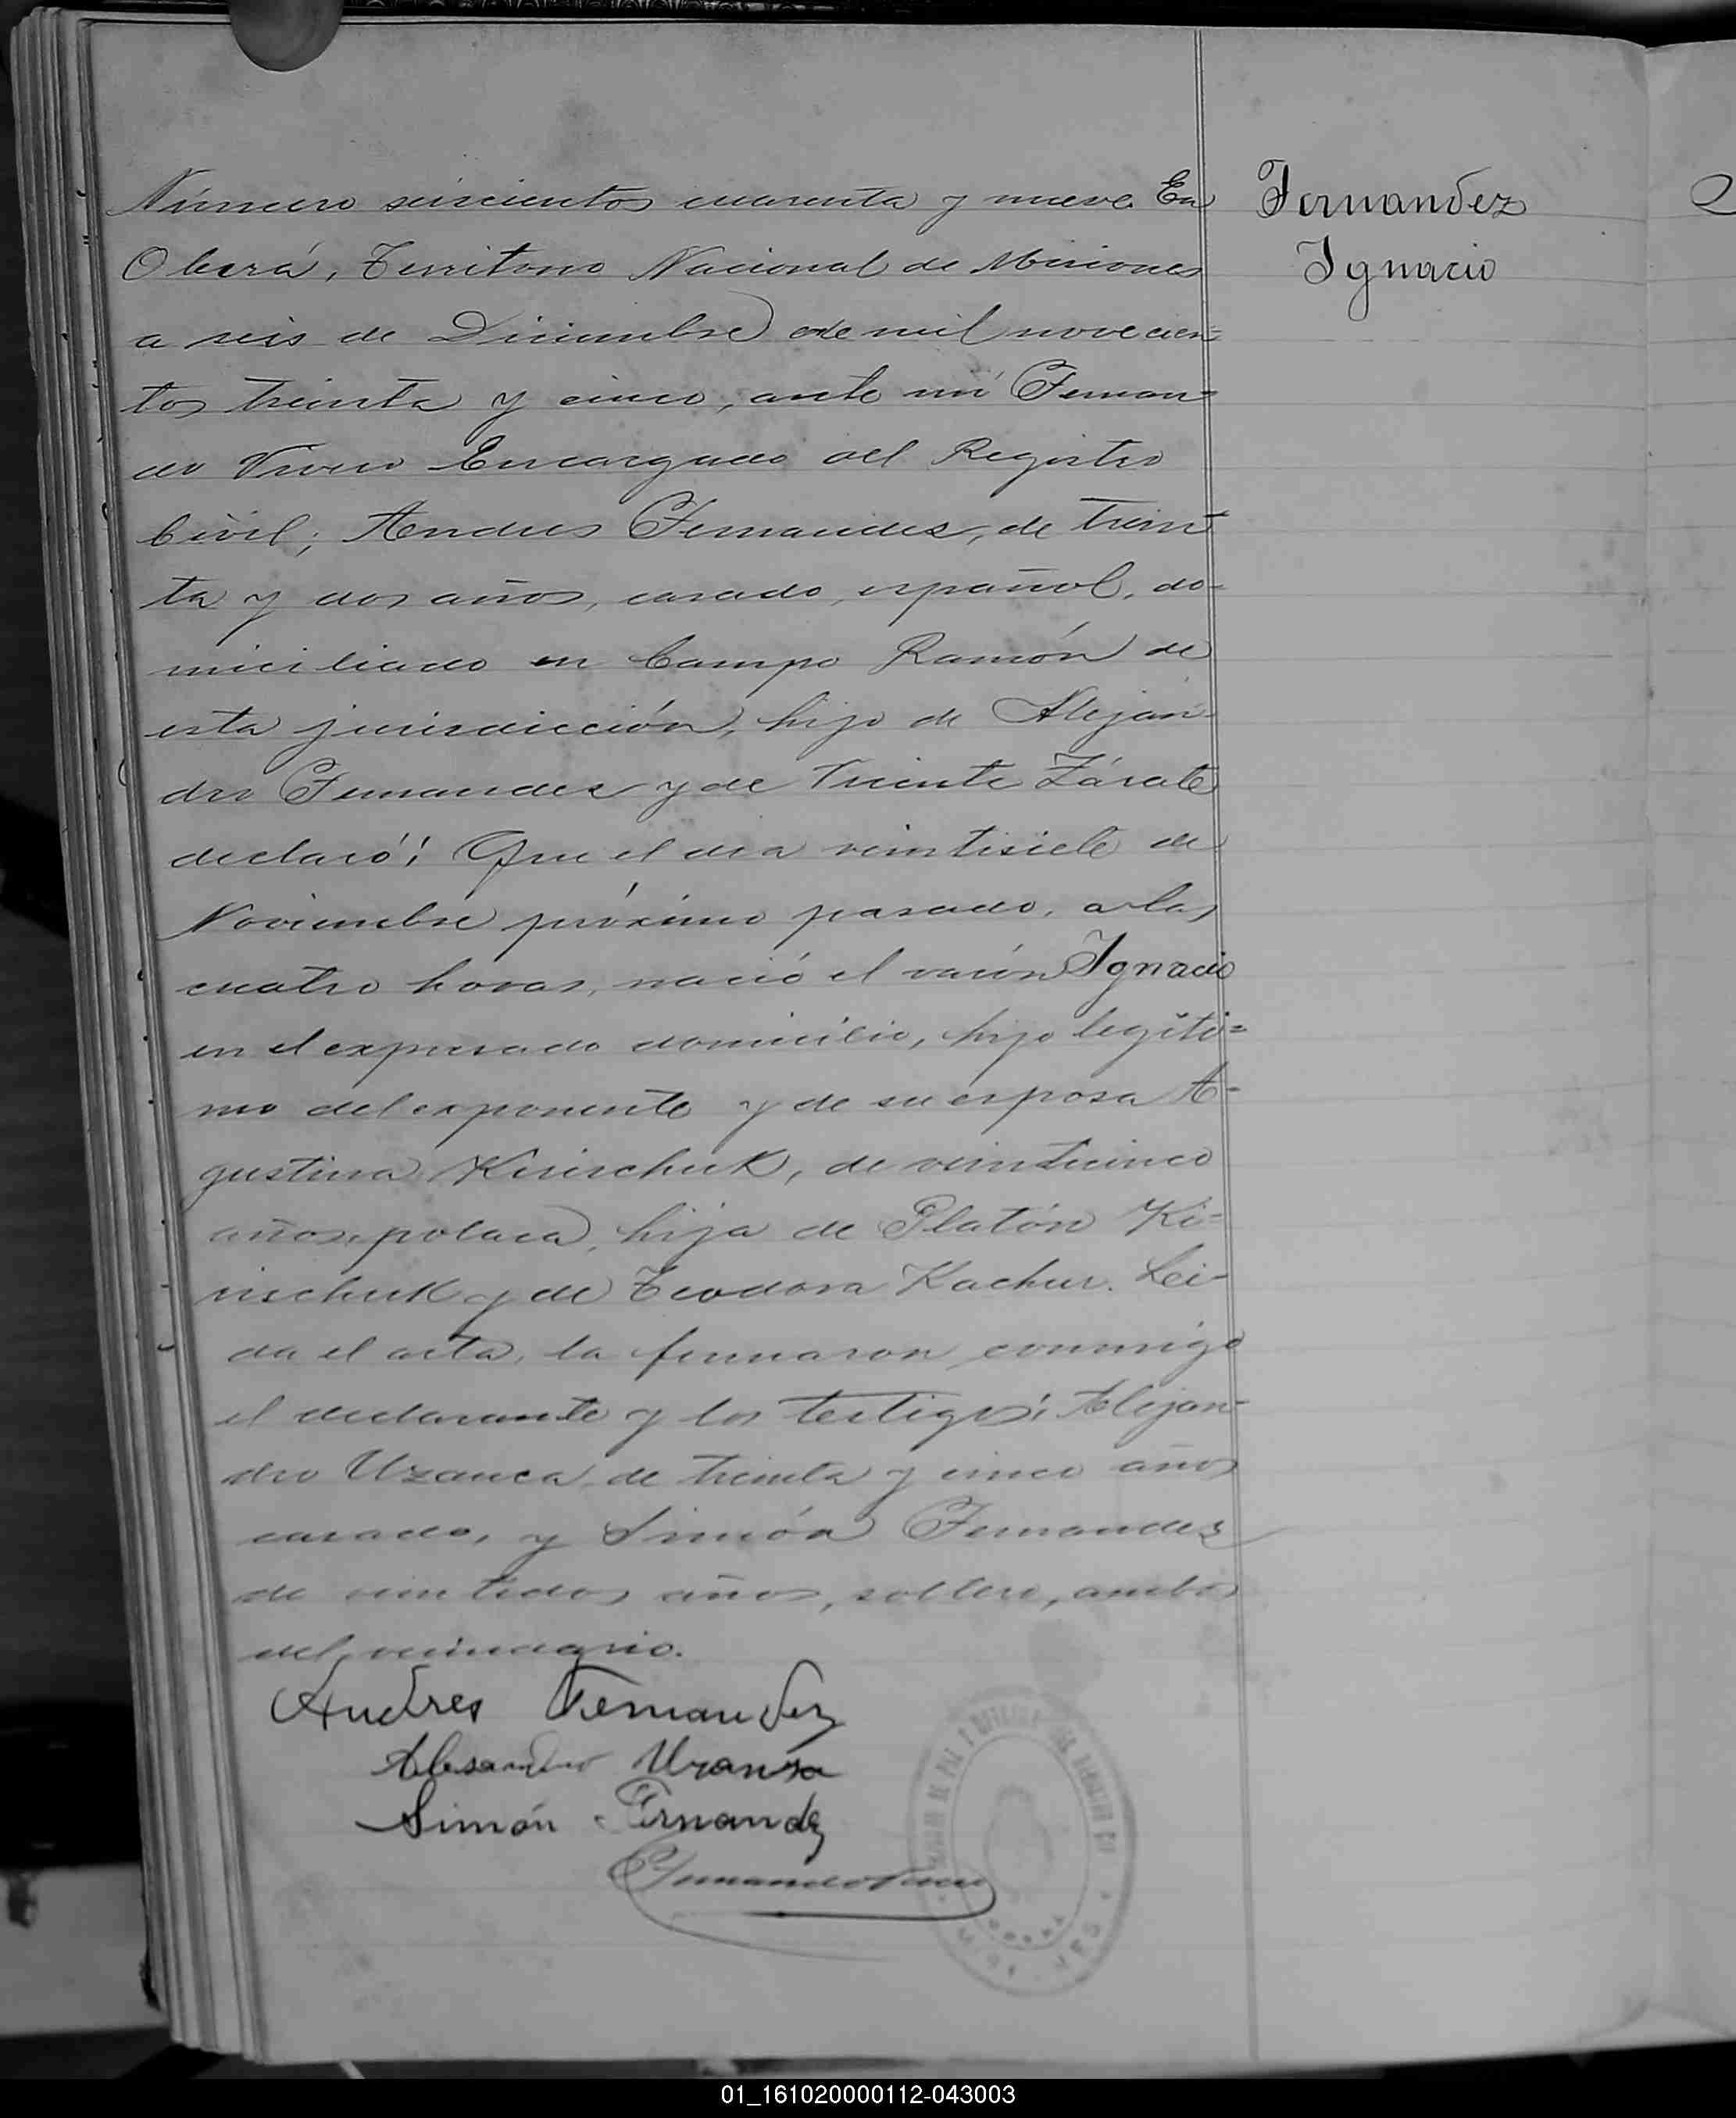 Número seiscientos cuarenta y nueve. En
Fernandez
Oberá, Territorio Nacional de Misiones
Ignacio
a seis de Diciembre de mil novecien=
tos treinta y cinco, ante mí Fernan=
do Encargado del Registro
Civil; Andres Fernandez, de trein-
ta y dos años, casado, español, do-
miciliado en Campo Ramón de
esta jurisdicción, hijo de Alejan-
dro Fernandez y de Zárate
declaró: Que el dia veintisiete de
Noviembre próximo pasado, a las
cuatro horas, nació el varón Ignacio
en el expresado domicilio, hijo legíti=
mo del exponente y de su esposa A-
gustina Kirischuk, de veinticinco
años, polaca, hija de Platón Ki=
rischuk y de Teodora Kachur. Lei-
da el acta, la firmaron conmigo
el declarante y los testigos: Alejan-
dro Uzanca, de treinta y cinco años
casado, y Simón Fernandez
de veintidos años, soltero, ambos
del vecindario.
Andres Fernandez
Simón Fernandez
01_161020000112-043003